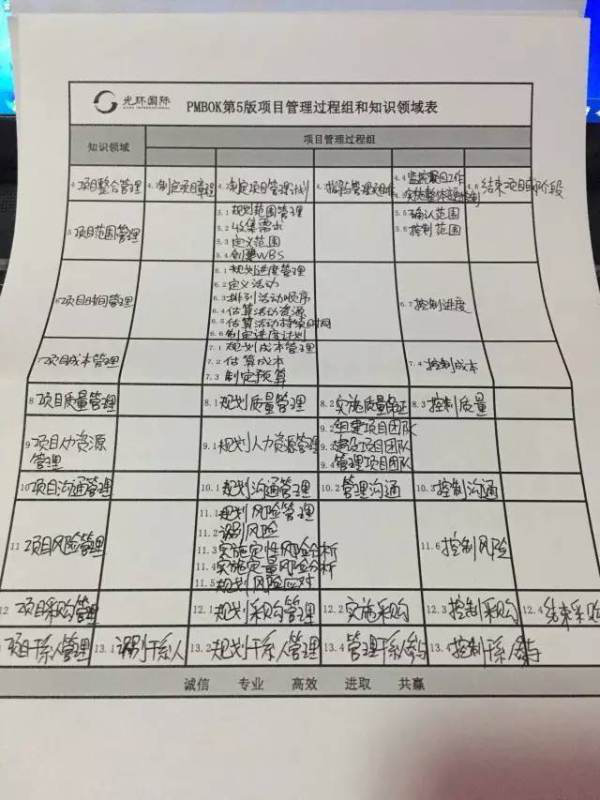 光环国际
PMBOK第5版项目管理过程组和知识领域表
知识领域
项目管理过程组
4 项目整合管理
4.1 制定项目章程
4.2 制定项目管理计划
4.3 指导与管理项目工作
4.4 监控项目工作
4.5 实施整体变更控制
4.6 结束项目或阶段
5 项目范围管理
5.1 规划范围管理
5.2 收集需求
5.3 定义范围
5.4 创建WBS
5.5 确认范围
5.6 控制范围
6 项目时间管理
6.1 规划进度管理
6.2 定义活动
6.3 排列活动顺序
6.4 估算活动资源
6.5 估算活动持续时间
6.6 制定进度计划
6.7 控制进度
7 项目成本管理
7.1 规划成本管理
7.2 估算成本
7.3 制定预算
7.4 控制成本
8 项目质量管理
8.1 规划质量管理
8.2 实施质量保证
8.3 控制质量
9 项目人力资源
管理
9.1 规划人力资源管理
9.2 组建项目团队
9.3 建设项目团队
9.4 管理项目团队
10 项目沟通管理
10.1 规划沟通管理
10.2 管理沟通
10.3 控制沟通
11 项目风险管理
11.1 规划风险管理
11.2 识别风险
11.3 实施定性风险分析
11.4 实施定量风险分析
11.5 规划风险应对
11.6 控制风险
12 项目采购管理
12.1 规划采购管理
12.2 实施采购
12.3 控制采购
12.4 结束采购
项目干系人管理
13.1 识别干系人
13.2 规划干系人管理
13.4 管理干系人参与
13.4 控制干系人参与
诚信 专业 高效 进取 共赢